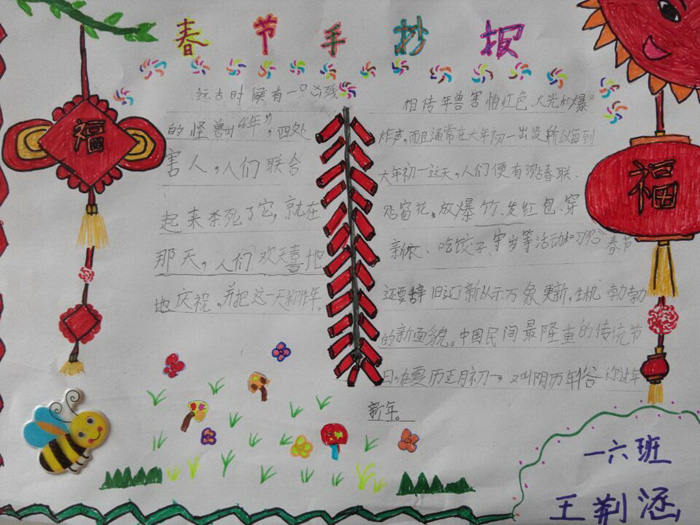 春节手抄报
远古时候有一个凶残
的怪兽叫"年",四处
害人,人们联合
起来杀死了它,就在
那天,人们欢天喜地
地庆祝,并把这一天称作年。
相传年兽害怕红色、火光和爆
炸声,而且通常在大年初一出没,所以每到
大年初一这天,人们便有了贴春联、
贴窗花、放爆竹、发红包、穿
新衣、吃饺子、守岁等活动和习俗春节
还要辞旧迎新以示万象更新,生机勃勃
的新面貌。中国民间最隆重的传统节
日,在夏历正月初一,又叫阴历年俗称过年
新年。
福
福
一六班
王荆涵